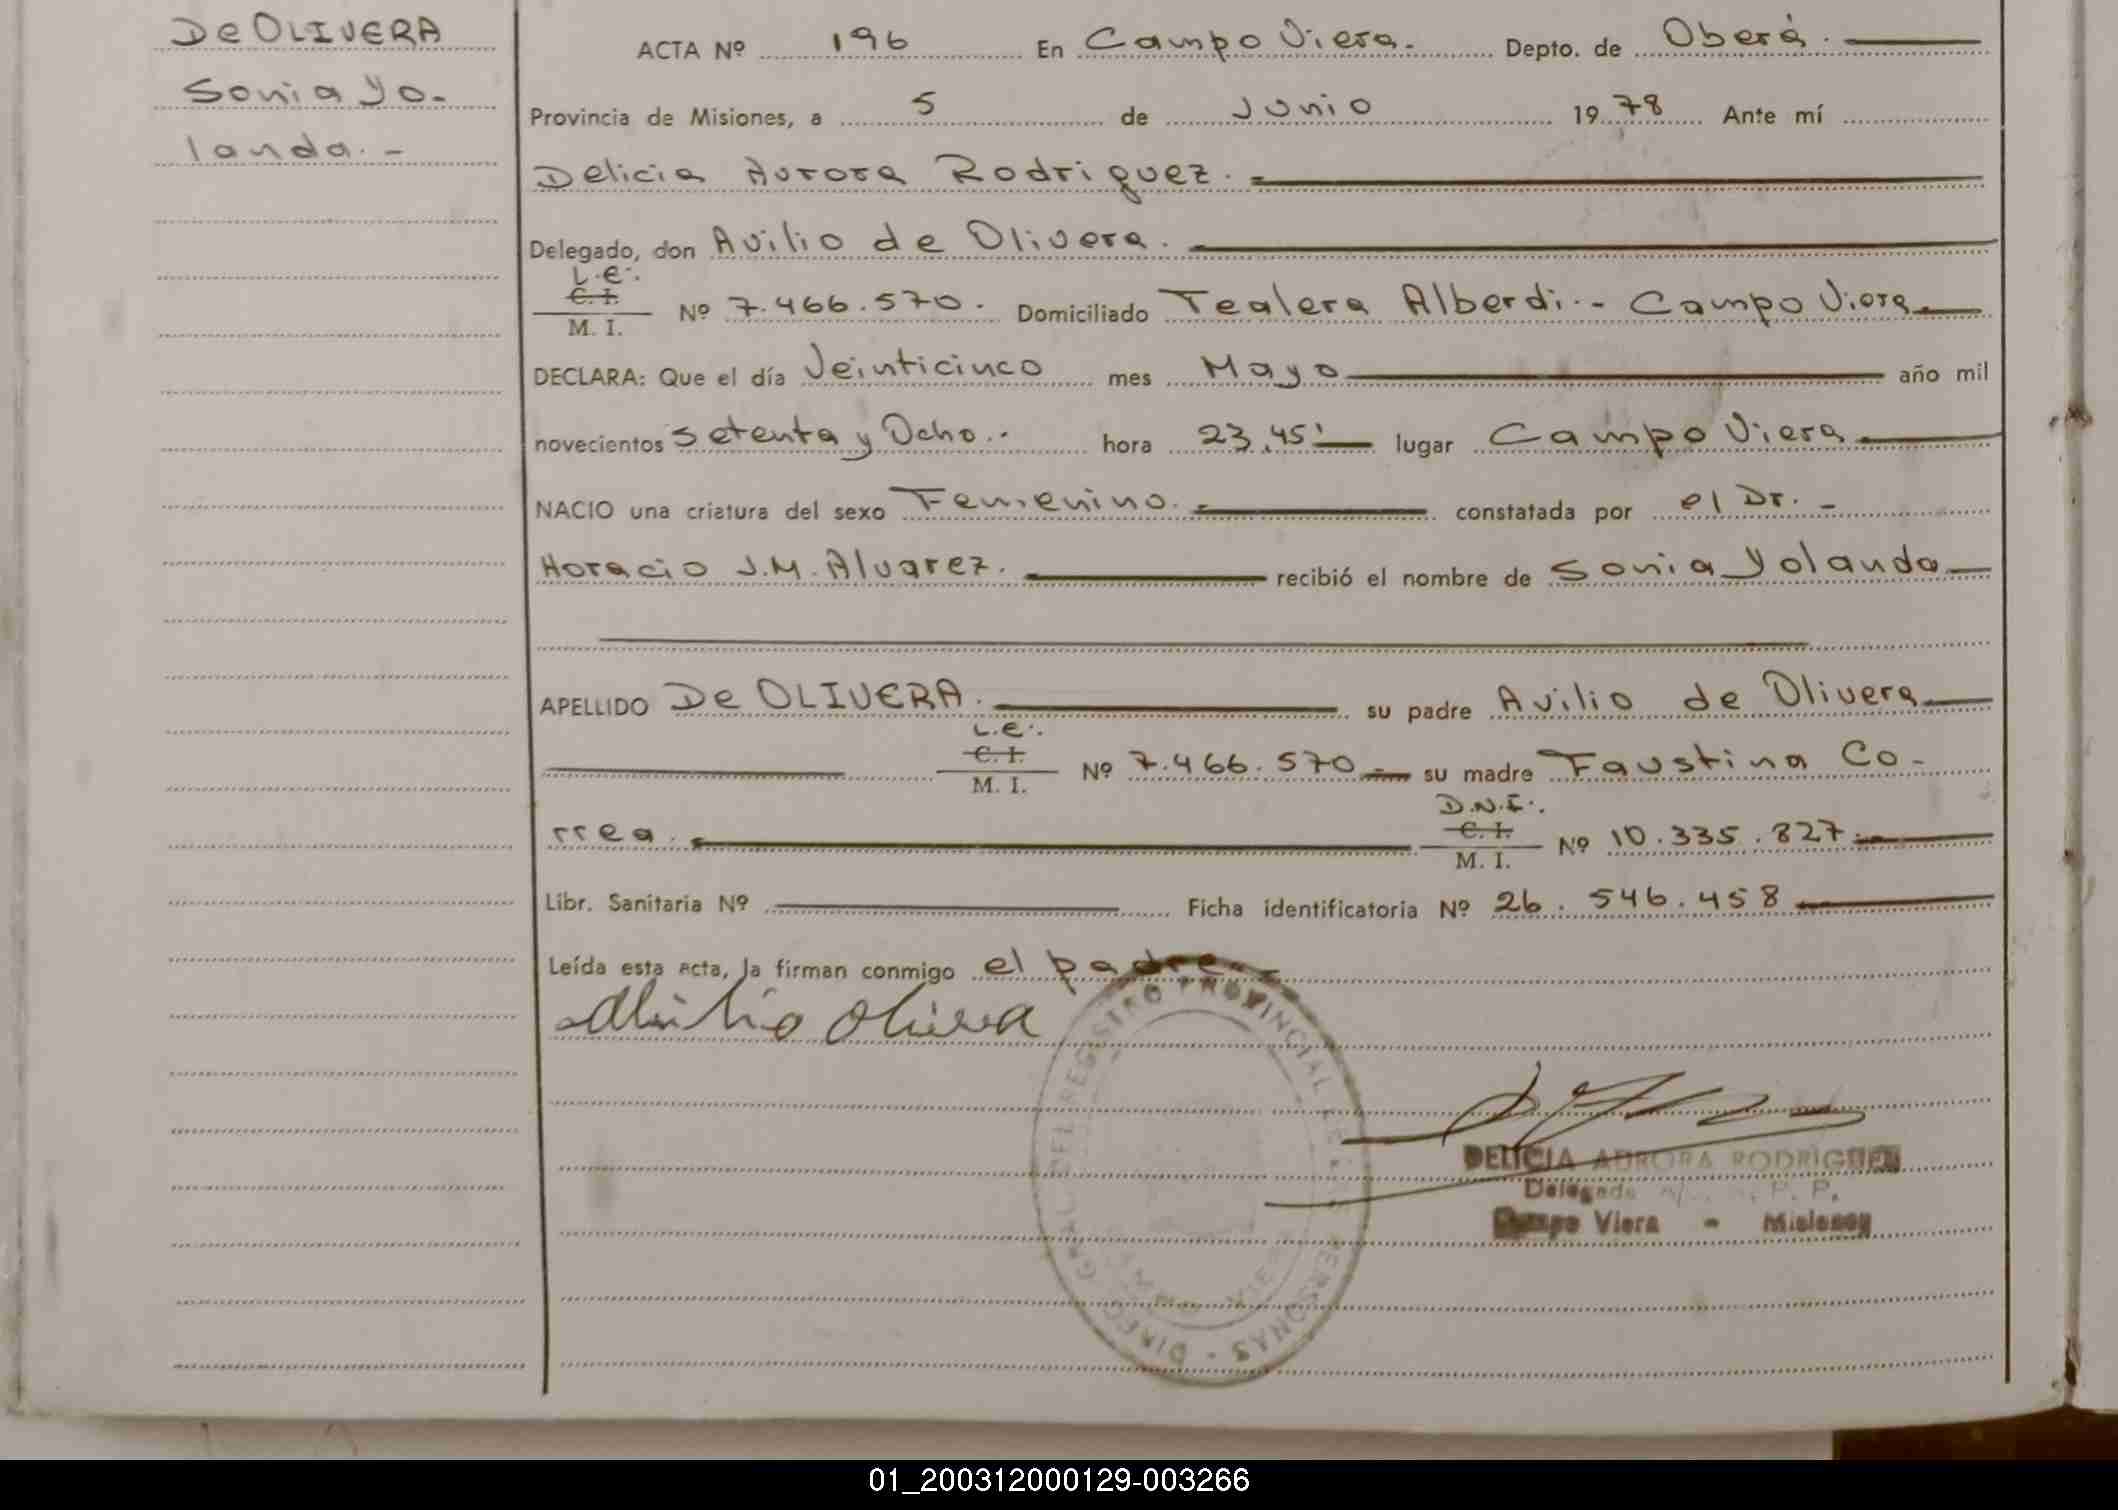 De OLIVERA
Sonia Yo-
landa.-
ACTA Nº 196 En Campo Viera. Depto. de Oberá.
Provincia de Misiones, a 5 de Junio 1978 Ante mí
Delicia Aurora Rodriguez.
Delegado, don Avilio de Olivera.
L.E.
C. I.
M. I. Nº 7.466.570. Domiciliado Tealera Alberdi.- Campo Viera
DECLARA: Que el día Veinticinco mes Mayo año mil
novecientos setenta y Ocho.- hora 23,45' lugar Campo Viera
NACIO una criatura del sexo Femenino. constatada por el Dr. -
Horacio J.M. Alvarez. recibió el nombre de Sonia Yolanda
APELLIDO De OLIVERA. su padre Avilio de Olivera
L.E.
C. I.
M. I. Nº 7.466.570.- su madre Faustina Co-
rrea. D.N.I. C. I. M. I. Nº 10.335.827.-
Libr. Sanitaria Nº Ficha identificatoria Nº 26.546.458
Leída esta acta, la firman conmigo el padre.-
Avilio Olivera
DIREC. GRAL. DEL REGISTRO PROVINCIAL DE LAS PERSONAS
CAMPO VIERA
DELICIA AURORA RODRIGUEZ
Delegada P. P.
Campo Viera - Misiones
01_200312000129-003266